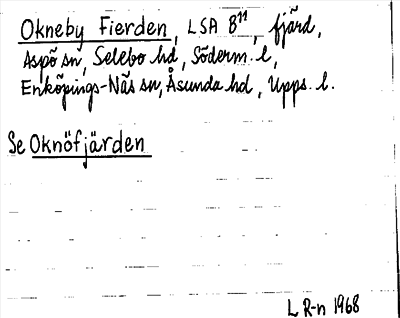 Okneby Fierden, LSA B¹¹, fjärd,
Aspö sn, Selebo hd, Söderm. l,
Enköpings-Näs sn, Åsunda hd, Upps. l.
Se Oknöfjärden
L R-n 1968